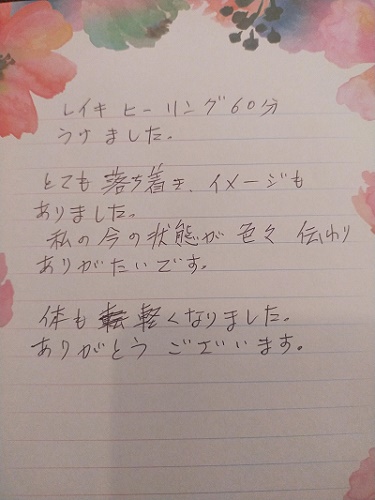 レイキ ヒーリング60分
うけました。
とても 落ち着き、イメージも
ありました。
私の今の状態が 色々 伝わり
ありがたいです。
体も 軽くなりました。
ありがとう ございます。